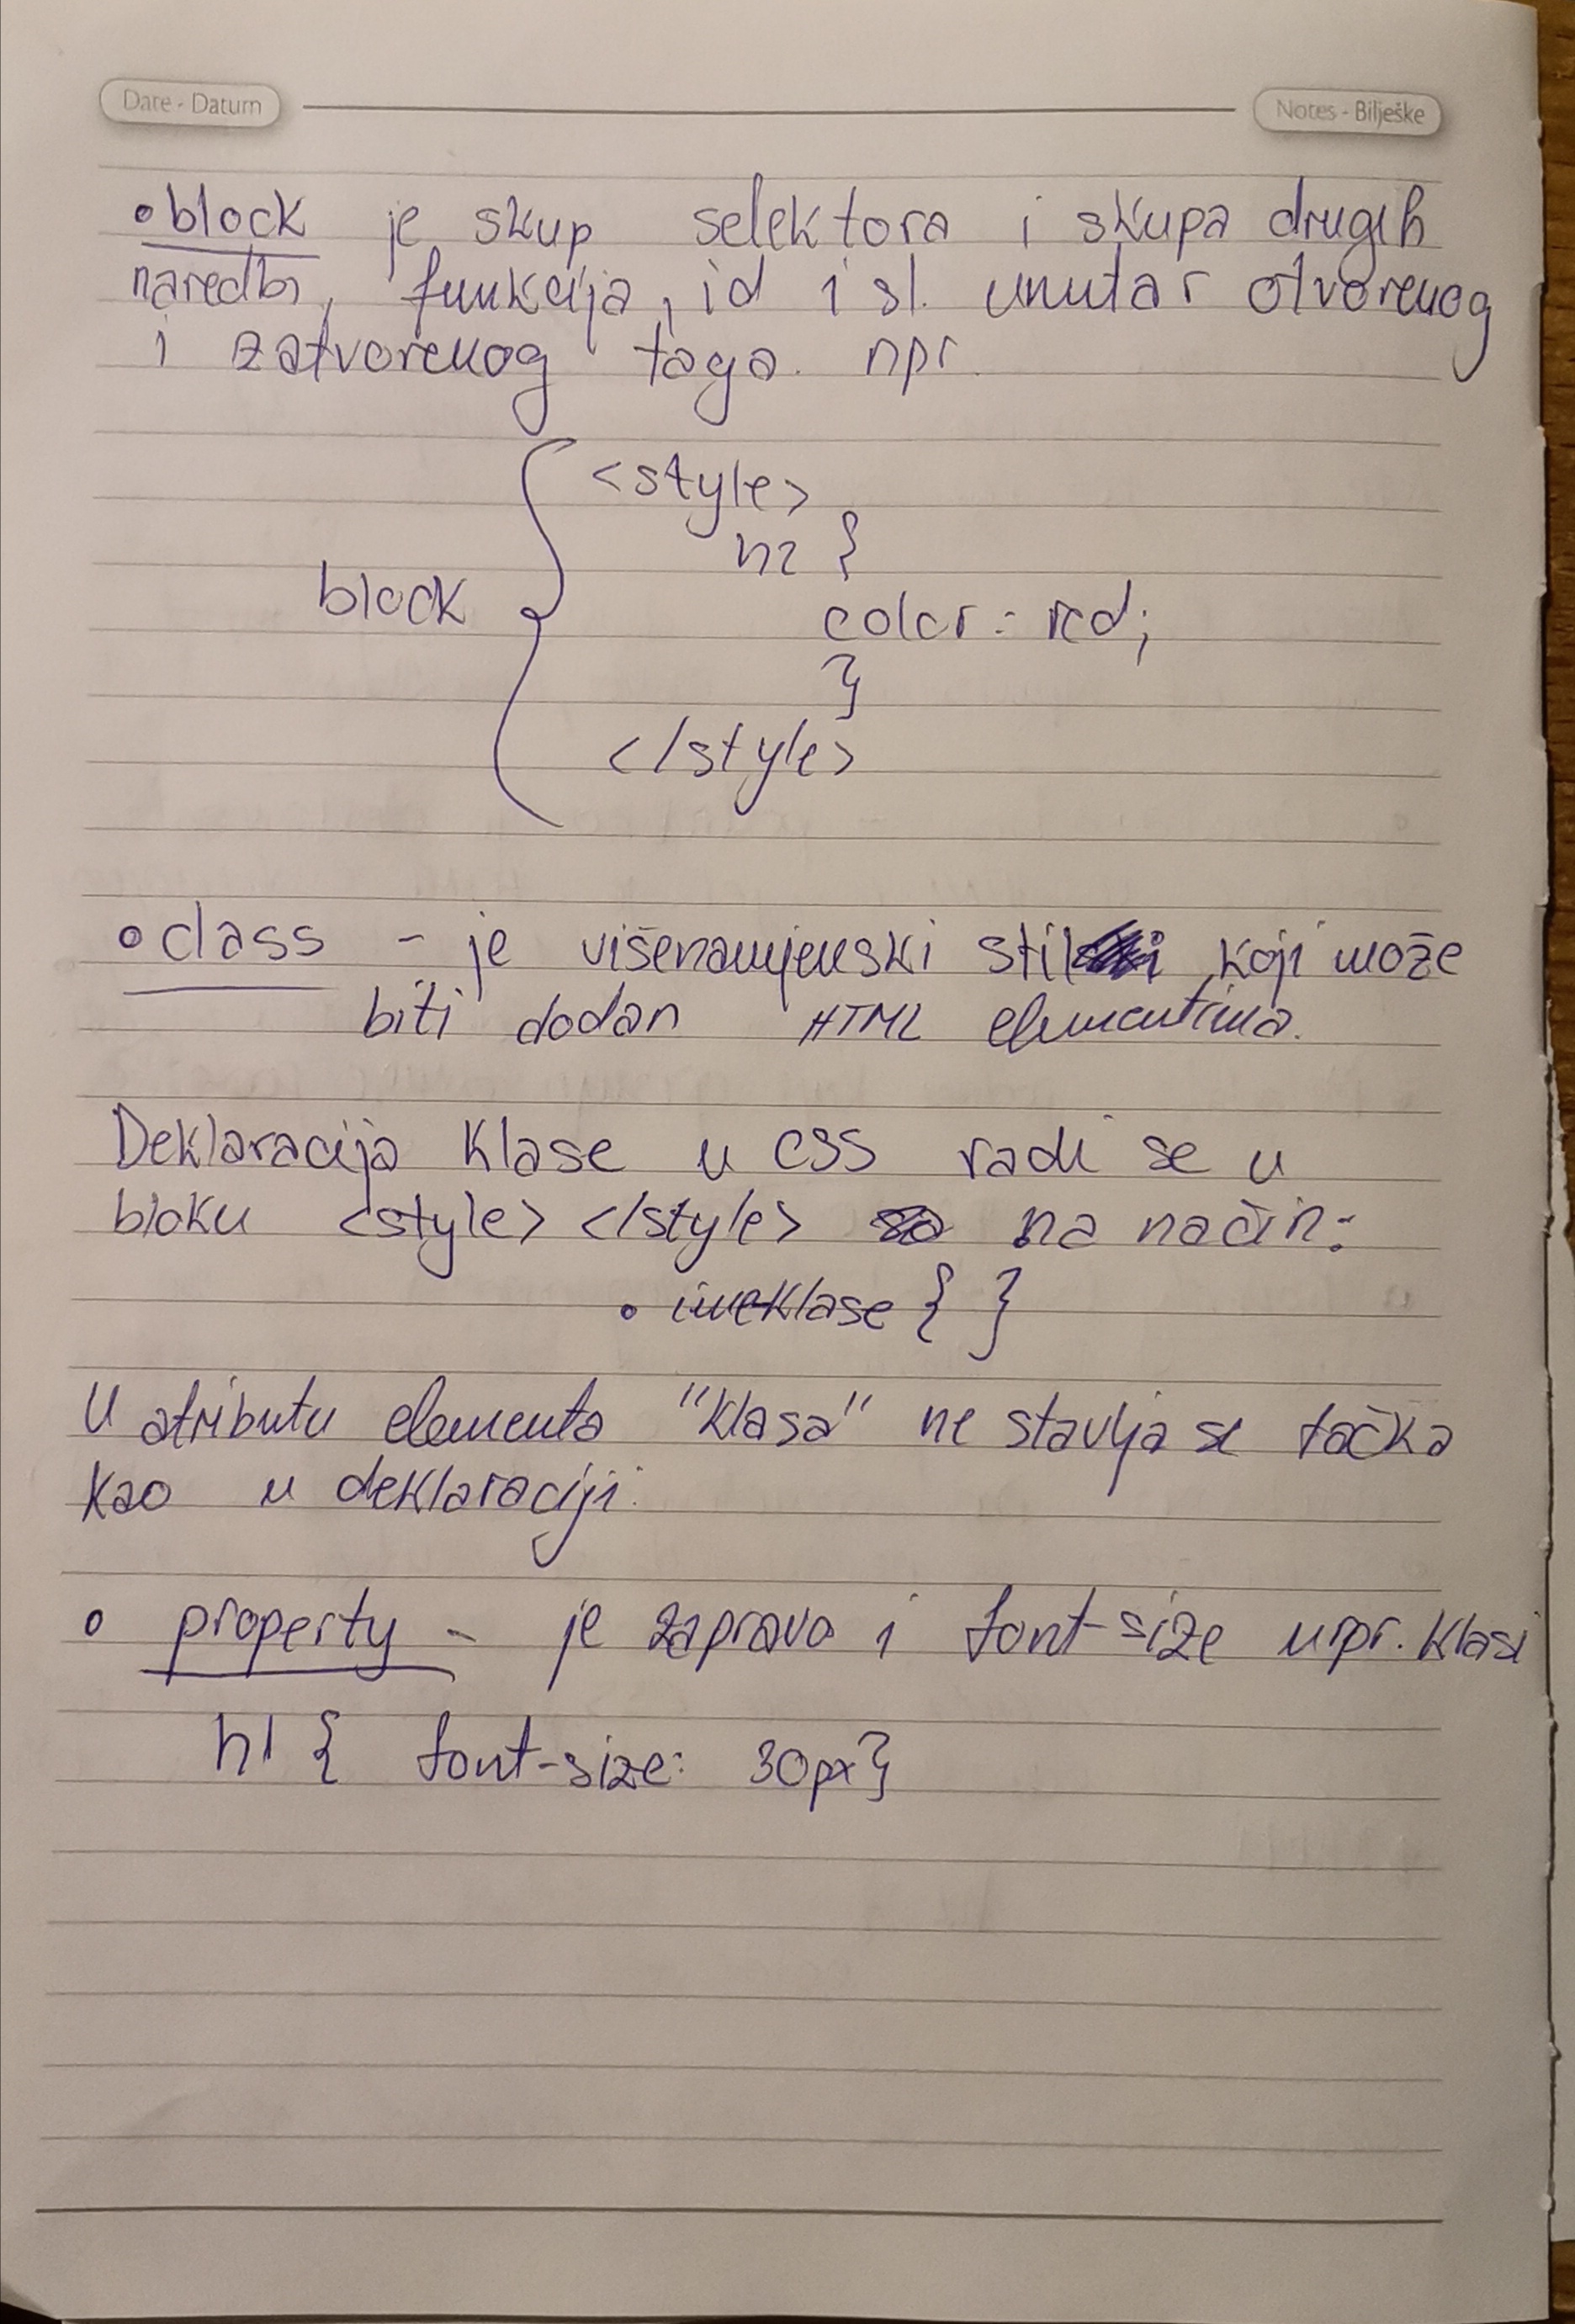 Date - Datum
Notes - Bilješke
• block je skup selektora i skupa drugih
naredbi, funkcija, id i sl. unutar otvorenog
i zatvorenog taga. npr.
<style>
h2 {
block
color: red;
}
</style>
• class - je višenamjenski stil koji može
biti dodan HTML elementima.
Deklaracija klase u CSS radi se u
bloku <style> </style> na način:
• imeklase { }
U atributu elementa "klasa" ne stavlja se tačka
kao u deklaraciji.
• property - je zapravo i font-size u npr. klasi
h1 { font-size: 30px}